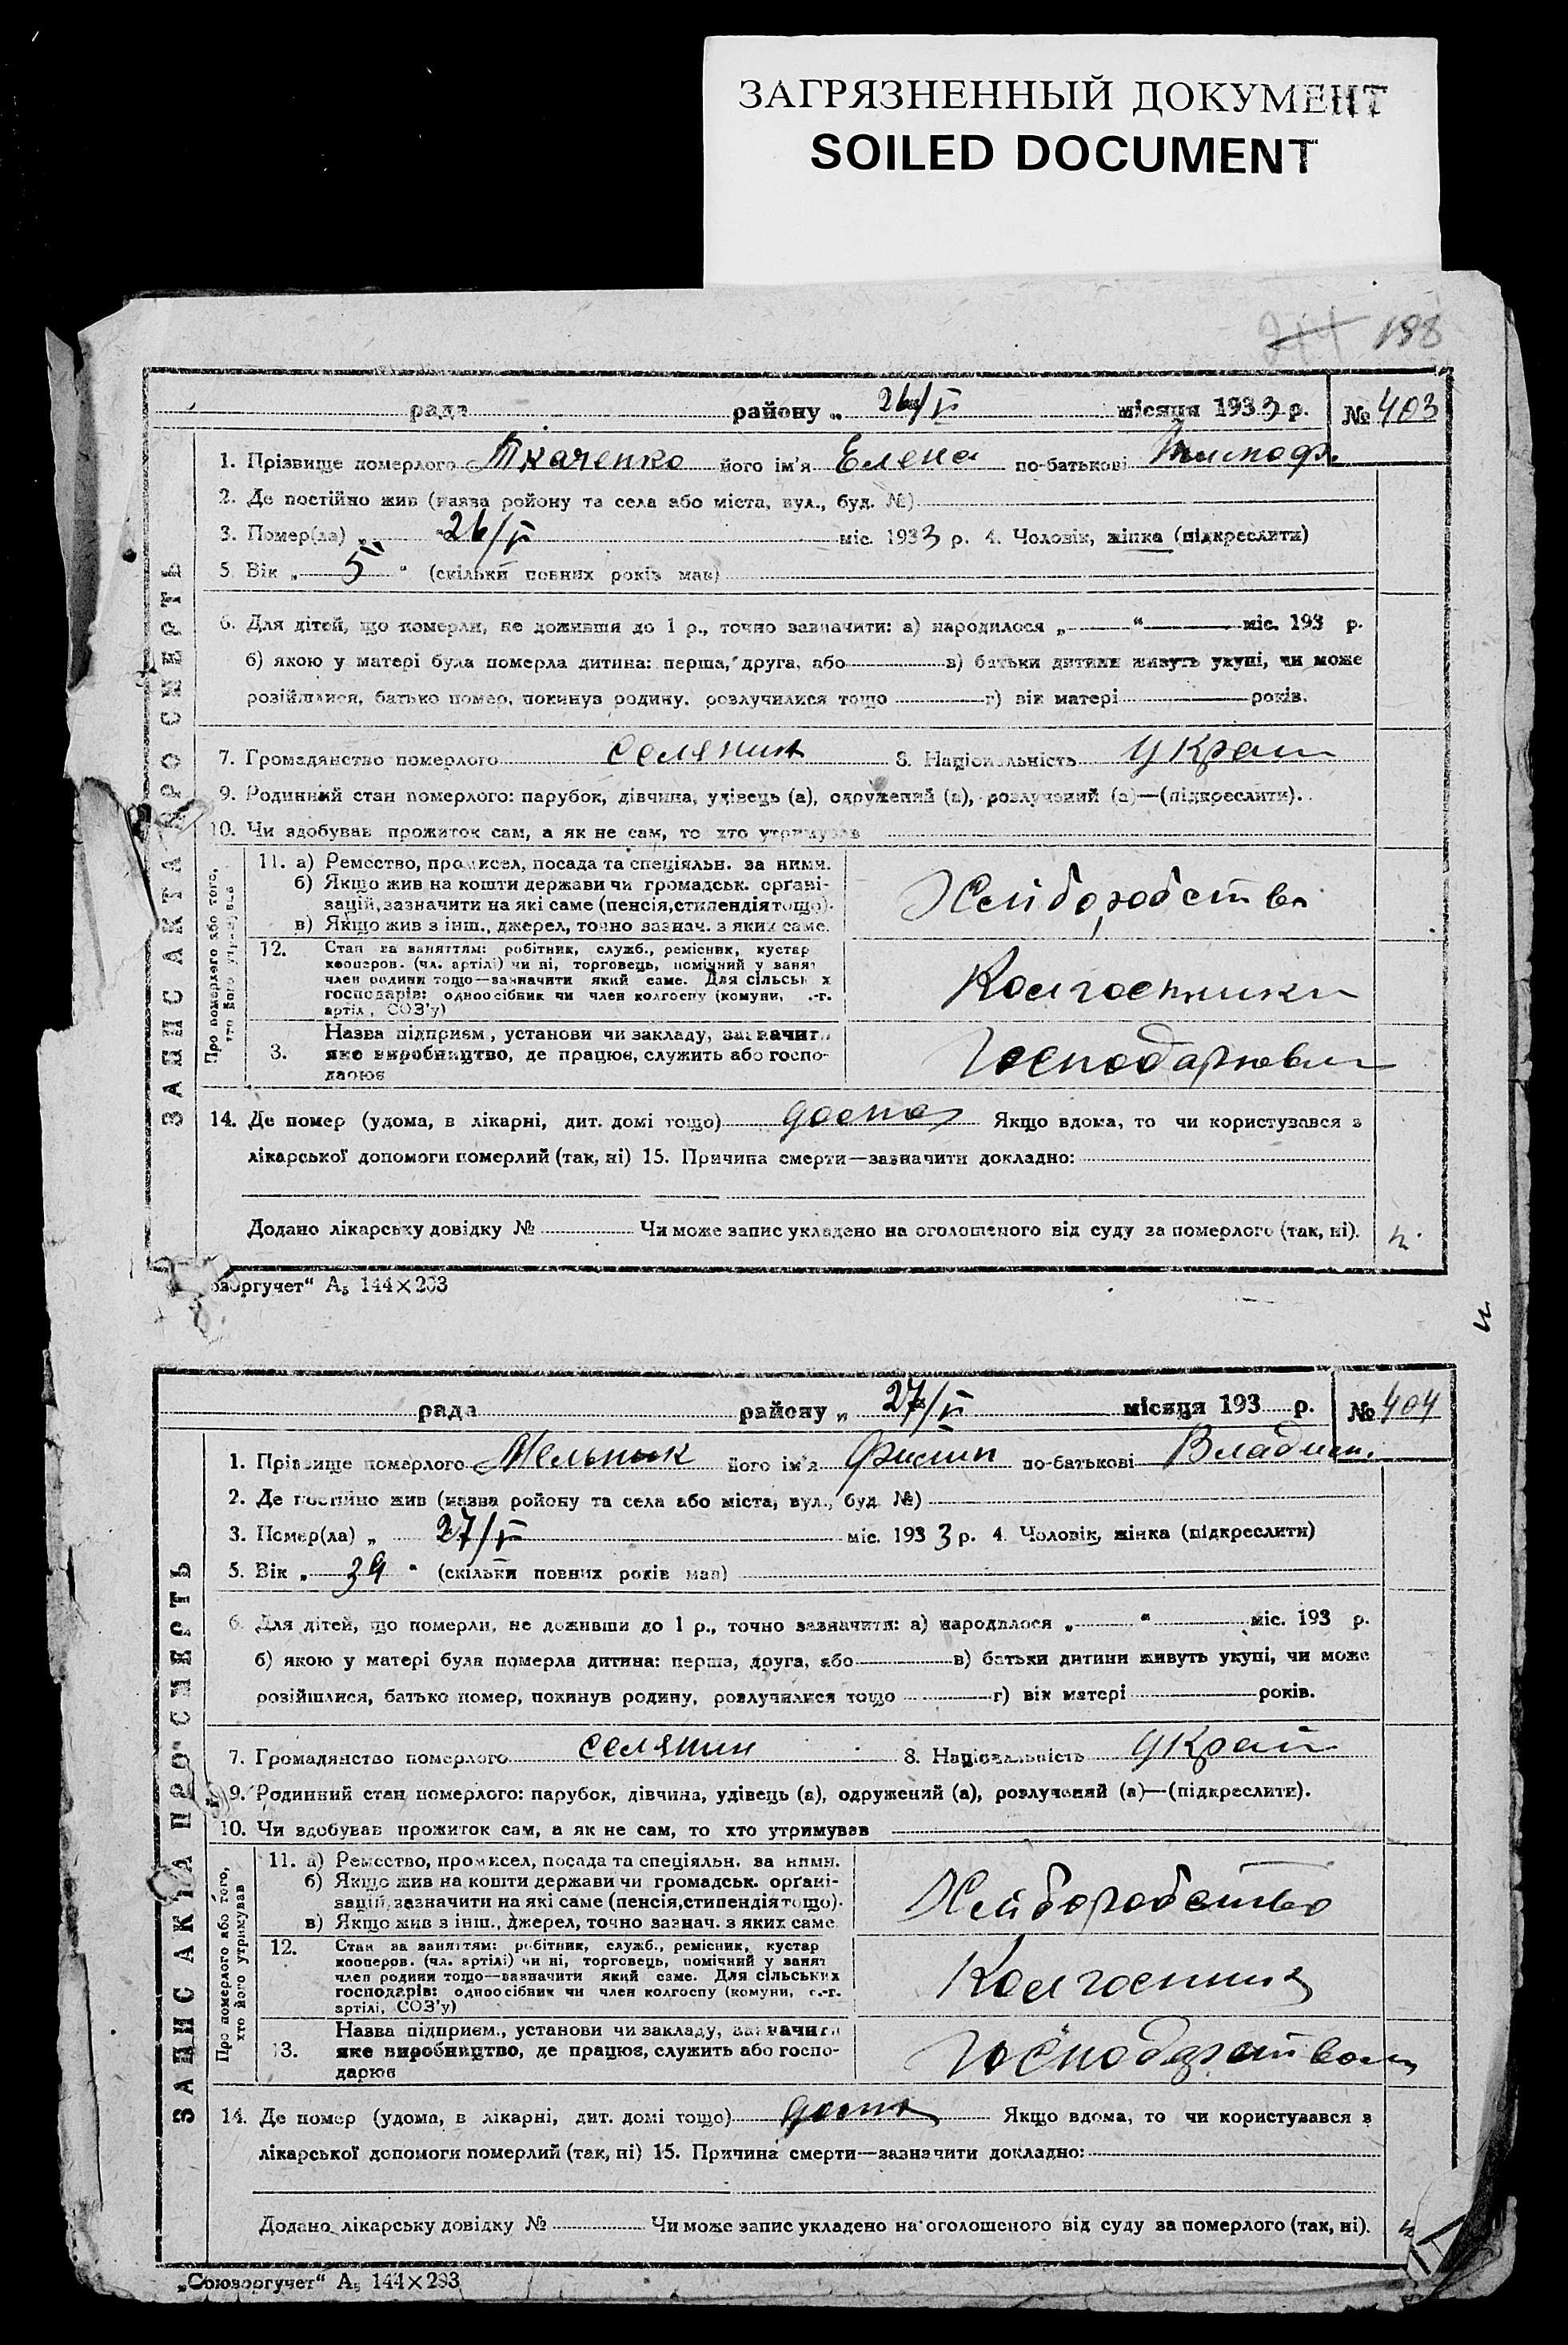 ЗАГРЯЗНЕННЫЙ ДОКУМЕНТ
SOILED DOCUMENT
198
рада району „ 26/V місяця 1933 р. № 403
1. Прізвище померлого Ткаченко його ім'я Елена по-батькові
2. Де постійно жив (назва ройону та села або міста, вул., буд. №)
3. Помер(ла) „ 26/V міс. 1933 р. 4. Чоловік, жінка (підкреслити)
5. Вік „ 5 “ (скільки повних років мав)
6. Для дітей, що померли, не доживши до 1 р., точно зазначити: а) народилося „ “ міс. 193 р.
б) якою у матері була померла дитина: перша, друга, або в) батьки дитини живуть укупі, чи може
розійшлися, батько помер, покинув родину, розлучилися тощо г) вік матері років.
7. Громадянство померлого селянин 8. Національність україн
9. Родинний стан померлого: парубок, дівчина, удівець (а), одружений (а), розлучений (а)—(підкреслити).
10. Чи здобував прожиток сам, а як не сам, то хто утримував
ЗАПИС АКТА ПРО СМЕРТЬ
Про померлого або того,
хто його утримував
11. а) Ремество, промисел, посада та спеціяльн. за ними.
б) Якщо жив на кошти держави чи громадськ. органі-
зацій, зазначити на які саме (пенсія, стипендія тощо).
в) Якщо жив з інш., джерел, точно зазнач. з яких саме.
Хліборобство
12. Стан за заняттям: робітник, служб., ремісник, кустар
кооперов. (чл. артілі) чи ні, торговець, помічний у занят
член родини тощо—зазначити який саме. Для сільських
господарів: одноосібник чи член колгоспу (комуни, с.-г.
артілі, СОЗ'у)
Колгоспники
3. Назва підприєм., установи чи закладу, зазначити
яке виробництво, де працює, служить або госпо-
дарює
14. Де помер (удома, в лікарні, дит. домі тощо) дома Якщо вдома, то чи користувався з
лікарської допомоги померлий (так, ні) 15. Причина смерти—зазначити докладно:
Додано лікарську довідку № Чи може запис укладено на оголошеного від суду за померлого (так, ні).
оюзоргучет“ А₅ 144×203
рада району „ 27/V місяця 193 р. № 404
1. Прізвище померлого Мельник його ім'я Филип по-батькові
2. Де постійно жив (назва ройону та села або міста, вул., буд. №)
3. Помер(ла) „ 27/V міс. 1933 р. 4. Чоловік, жінка (підкреслити)
5. Вік „ 39 “ (скільки повних років мав)
6. Для дітей, що померли, не доживши до 1 р., точно зазначити: а) народилося „ “ міс. 193 р.
б) якою у матері була померла дитина: перша, друга, або в) батьки дитини живуть укупі, чи може
розійшлися, батько помер, покинув родину, розлучилися тощо г) вік матері років.
7. Громадянство померлого селянин 8. Національність україн
9. Родинний стан померлого: парубок, дівчина, удівець (а), одружений (а), розлучений (а)—(підкреслити).
10. Чи здобував прожиток сам, а як не сам, то хто утримував
ЗАПИС АКТА ПРО СМЕРТЬ
Про померлого або того,
хто його утримував
11. а) Ремество, промисел, посада та спеціяльн. за ними.
б) Якщо жив на кошти держави чи громадськ. органі-
зацій, зазначити на які саме (пенсія, стипендія тощо).
в) Якщо жив з інш., джерел, точно зазнач. з яких саме
Хліборобство
12. Стан за заняттям: робітник, служб., ремісник, кустар
кооперов. (чл. артілі) чи ні, торговець, помічний у занят
член родини тощо—зазначити який саме. Для сільських
господарів: одноосібник чи член колгоспу (комуни, с.-г.
артілі, СОЗ'у)
Колгоспник
13. Назва підприєм., установи чи закладу, зазначити
яке виробництво, де працює, служить або госпо-
дарює
14. Де помер (удома, в лікарні, дит. домі тощо) дома Якщо вдома, то чи користувався з
лікарської допомоги померлий (так, ні) 15. Причина смерти—зазначити докладно:
Додано лікарську довідку № Чи може запис укладено на оголошеного від суду за померлого (так, ні).
„Союзоргучет“ А₅ 144×293